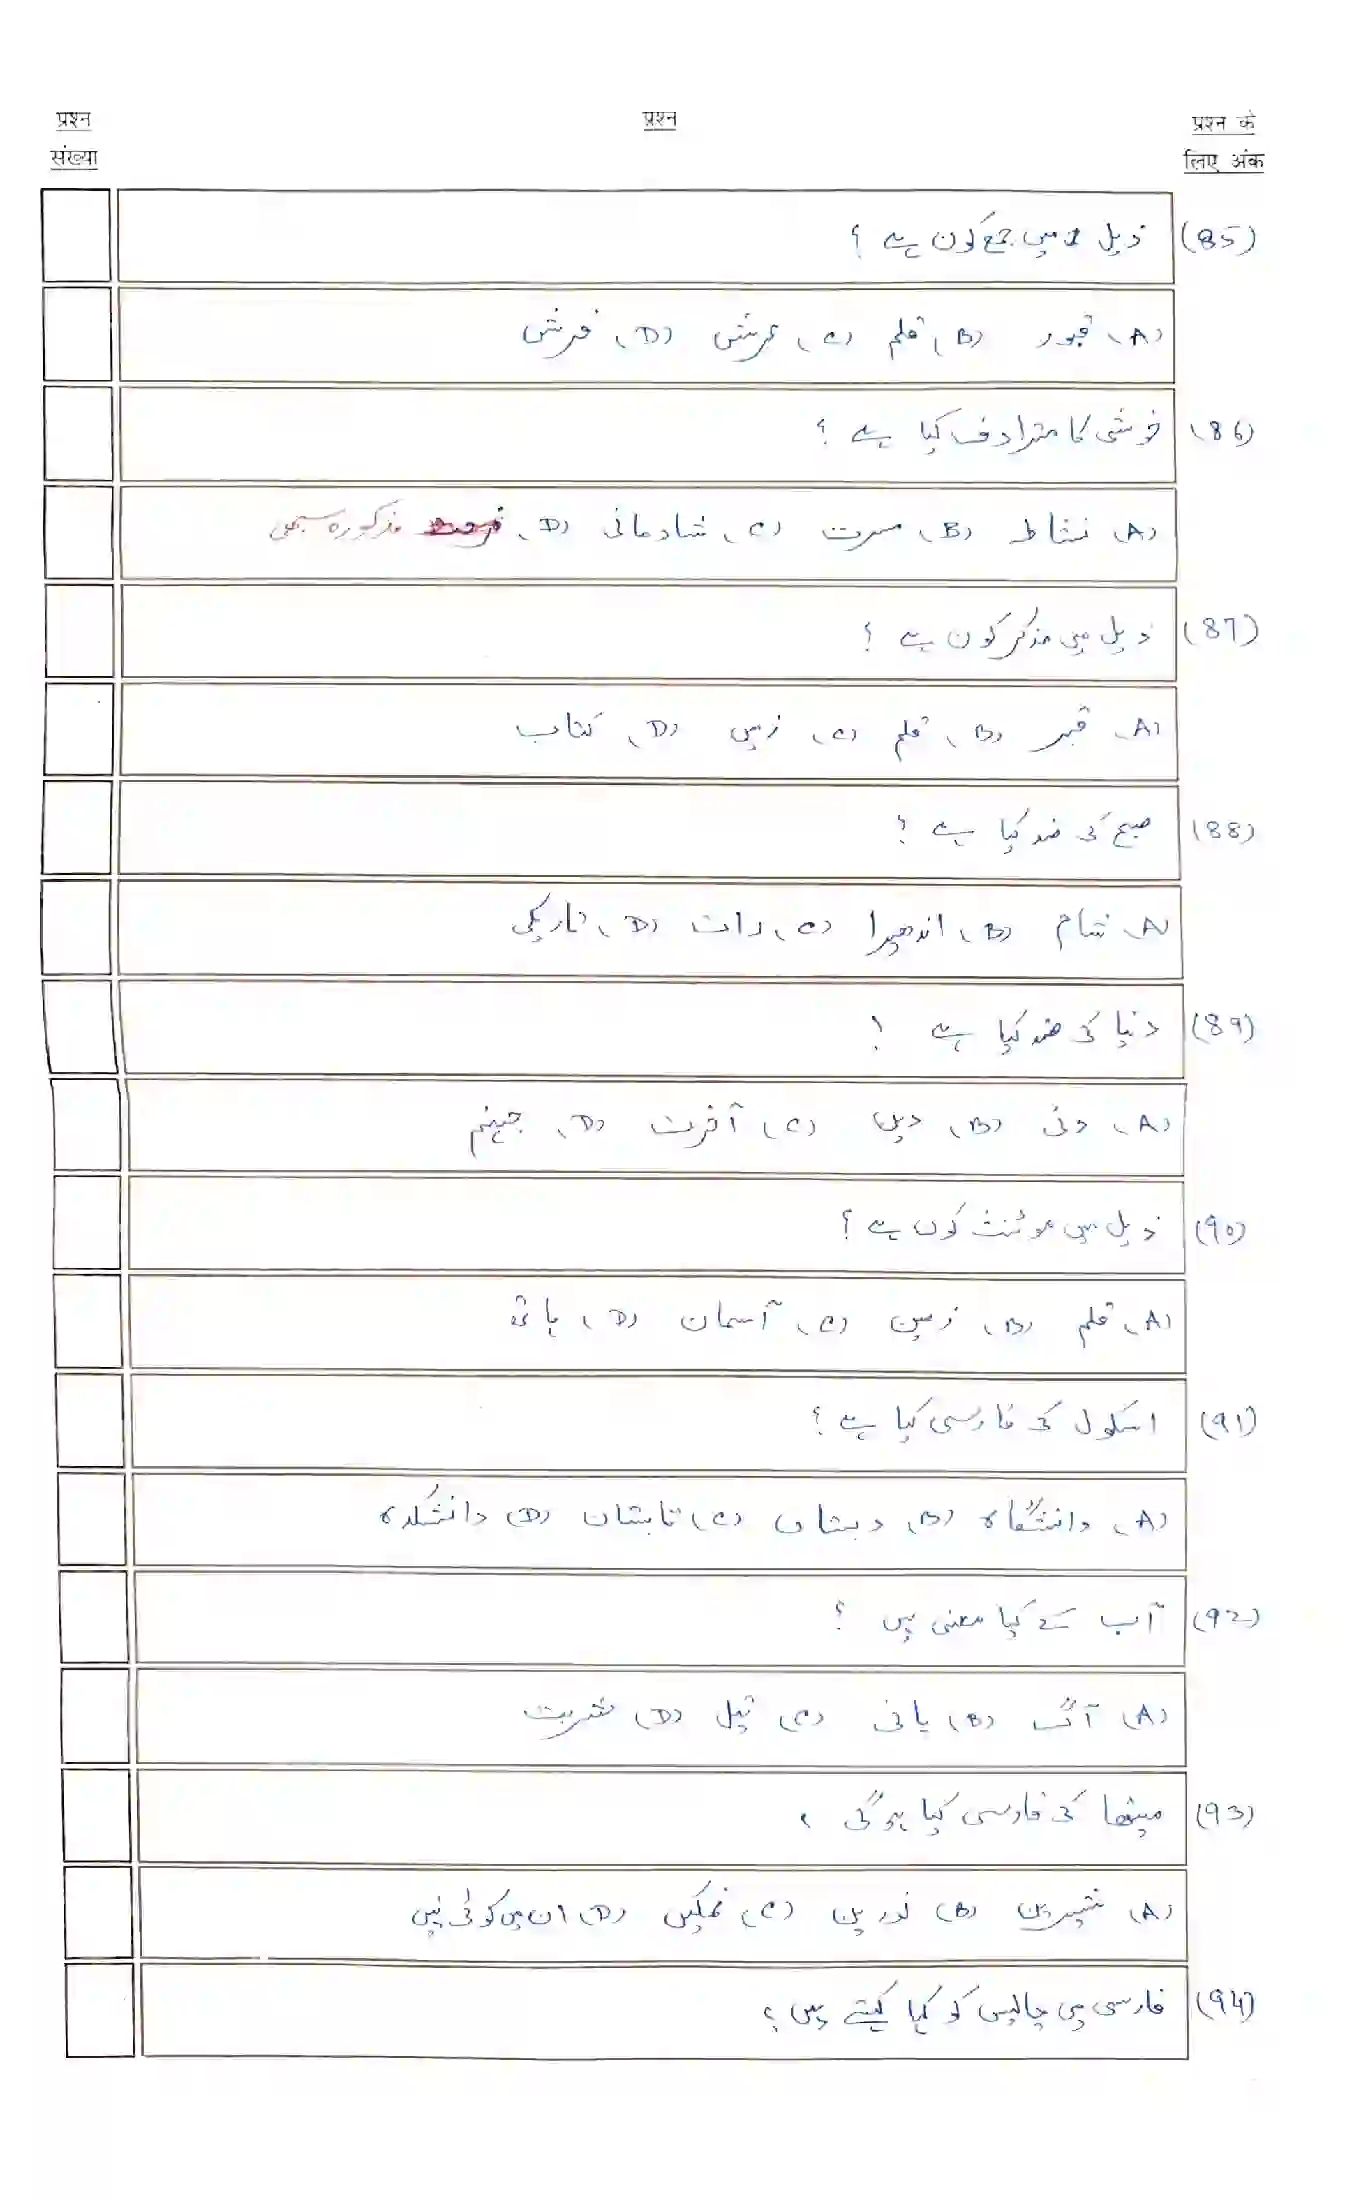 प्रश्न संख्या
प्रश्न
प्रश्न के लिए अंक
(85) ذیل میں جمع کون ہے ؟
(A) قبور (B) قلم (C) عرش (D) فرش
(86) خوشی کا مترادف کیا ہے ؟
(A) نشاط (B) مسرت (C) شادمانی (D) مذکورہ سبھی
(87) ذیل میں مذکر کون ہے ؟
(A) قبر (B) قلم (C) زمین (D) کتاب
(88) صبح کی ضد کیا ہے ؟
(A) شام (B) اندھیرا (C) رات (D) تاریکی
(89) دنیا کی ضد کیا ہے ؟
(A) دنی (B) دین (C) آخرت (D) جہنم
(90) ذیل میں مونث کون ہے ؟
(A) قلم (B) زمین (C) آسمان (D)
(91) اسکول کی فارسی کیا ہے ؟
(A) دانشگاہ (B) دبستان (C) تابستان (D) دانشکدہ
(92) آب کے کیا معنی ہیں ؟
(A) آگ (B) پانی (C) تیل (D) شربت
(93) میٹھا کی فارسی کیا ہوگی ؟
(A) شیرین (B) نورین (C) نمکین (D) ان میں کوئی نہیں
(94) فارسی میں چالیس کو کیا کہتے ہیں ؟